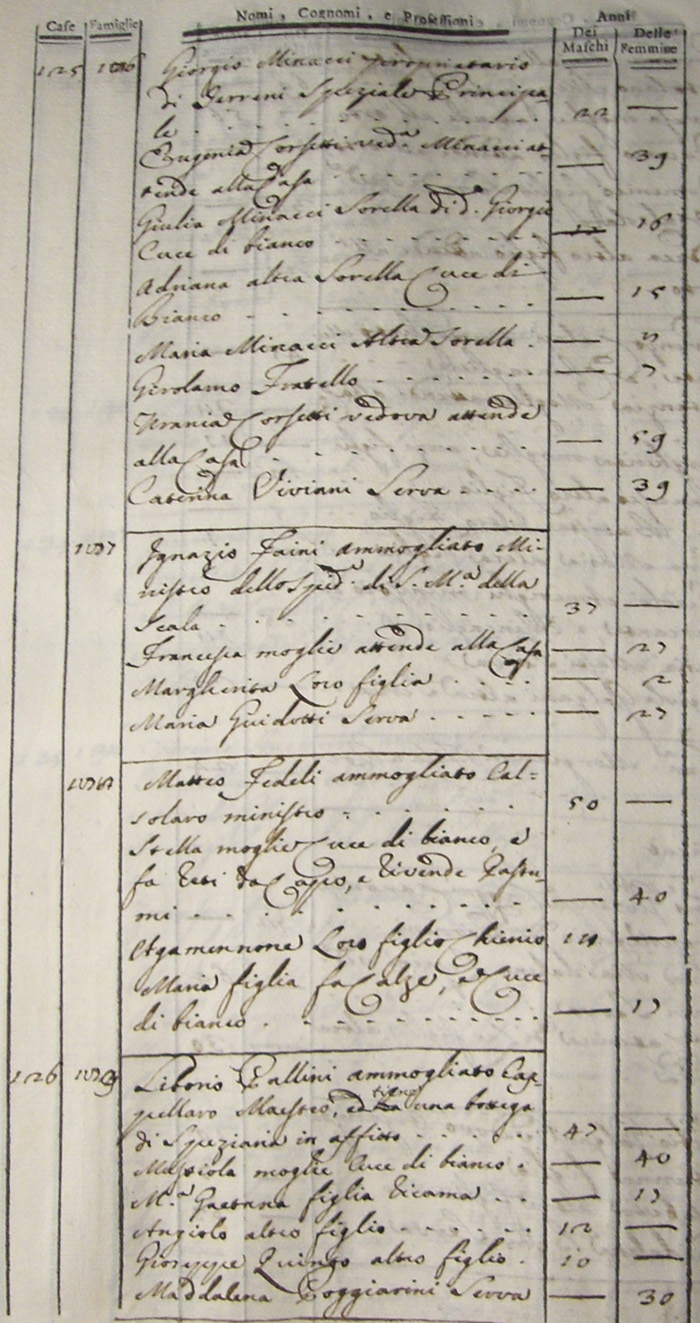 Case Famiglie Nomi, Cognomi, e Professioni Anni
Dei Maschi Delle Femmine
125 Giorgio Minacci proprietario
di Terreni Speziale Principa-
le . . . . . . 22 —
Eugenia Corsetti ved.a Minacci at-
tende alla Casa — 39
Giulia Minacci Sorella di d.o Giorgio
Cuce di bianco . . . . — 16
Adriana altra Sorella Cuce di
Bianco . . . . — 15
Maria Minacci Altra Sorella . —
Girolamo Fratello . . . . —
Urania Corsetti vedova attende
alla Casa . . . . — 59
Caterina Viviani Serva . . . . — 39
Ignazio Faini ammogliato Mi-
nistro dello Sped.e di S. M.a della
Scala . . . . 37 —
Francesca moglie attende alla Casa — 27
Margherita Loro figlia . . . . — 2
Maria Guidotti Serva . . . . — 27
Matteo Fedeli ammogliato Cal=
solaro ministro . . . . 50 —
Stella moglie Cuce di bianco, e
fa da Capo, e Rivende
mi . . . . — 40
Agamennone Loro figlio Chierico —
Maria figlia fa Calze, e Cuce
di bianco . . . . — 17
126 Liborio Pallini ammogliato Cap-
pellaro Maestro, ed tiene una bottega
di Speziaria in affitto . . . . 47 —
moglie Cuce di bianco . — 40
M.a Gaetana figlia ricama . . — 17
Angiolo altro figlio . . . . 12 —
Giuseppe Quingo altro figlio . 10 —
Maddalena Poggiarini Serva — 30